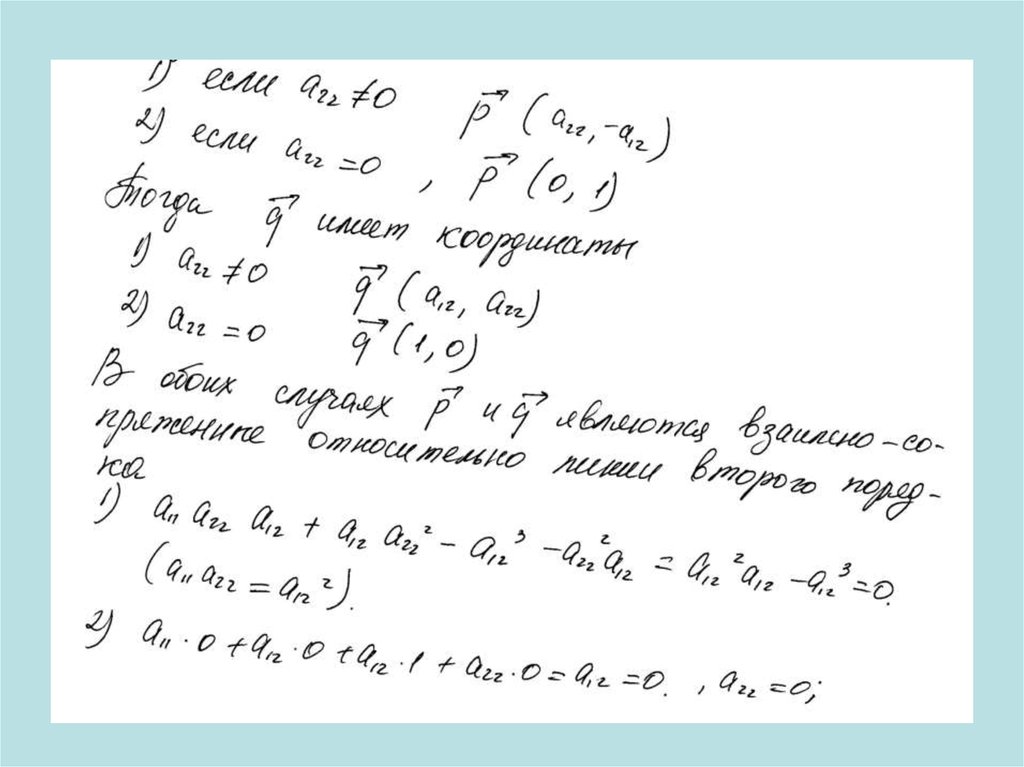 1) если a₂₂ ≠ 0 p⃗ (a₂₂, -a₁₂)
2) если a₂₂ = 0 , p⃗ (0, 1)
Тогда q⃗ имеет координаты
1) a₂₂ ≠ 0 q⃗ (a₁₂, a₂₂)
2) a₂₂ = 0 q⃗ (1, 0)
В обоих случаях p⃗ и q⃗ являются взаимно-со-
пряженние относительно линии второго поряд-
ка
1) a₁₁ a₂₂ a₁₂ + a₁₂ a₂₂² - a₁₂³ - a₂₂² a₁₂ = a₁₂² a₁₂ - a₁₂³ = 0.
(a₁₁ a₂₂ = a₁₂²).
2) a₁₁ · 0 + a₁₂ · 0 + a₁₂ · 1 + a₂₂ · 0 = a₁₂ = 0. , a₂₂ = 0;